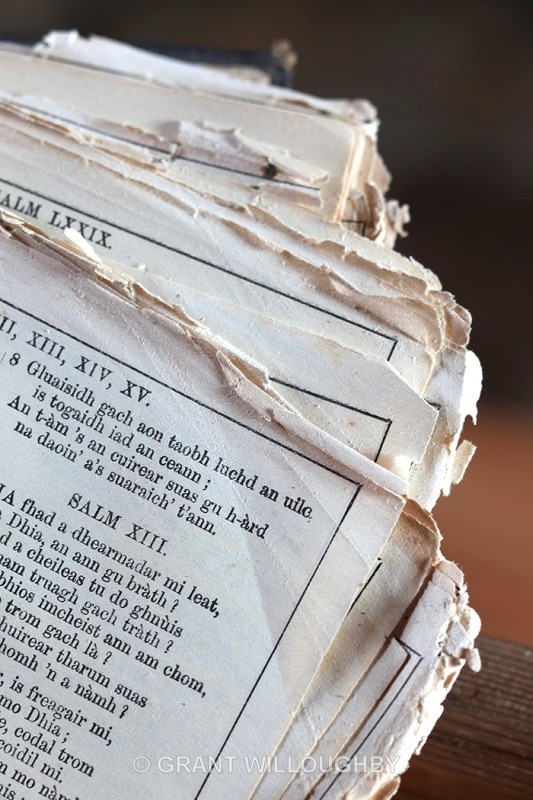 SALM LXXIX.
II, XIII, XIV, XV.
8 Gluaisidh gach aon taobh luchd an uilc,
is togaidh iad an ceann;
An t-àm 's an cuirear suas gu h-àrd
na daoin' a's suaraich' t'ann.
SALM XIII.
fhad a dhearmadar mi leat,
Dhia, an ann gu bràth?
a cheileas tu do ghnùis
truagh gach tràth?
imcheist ann am chom,
trom gach là?
tharum suas
'n a nàmh?
is freagair mi,
mo Dhia;
codal trom
mi.
mo
© GRANT WILLOUGHBY